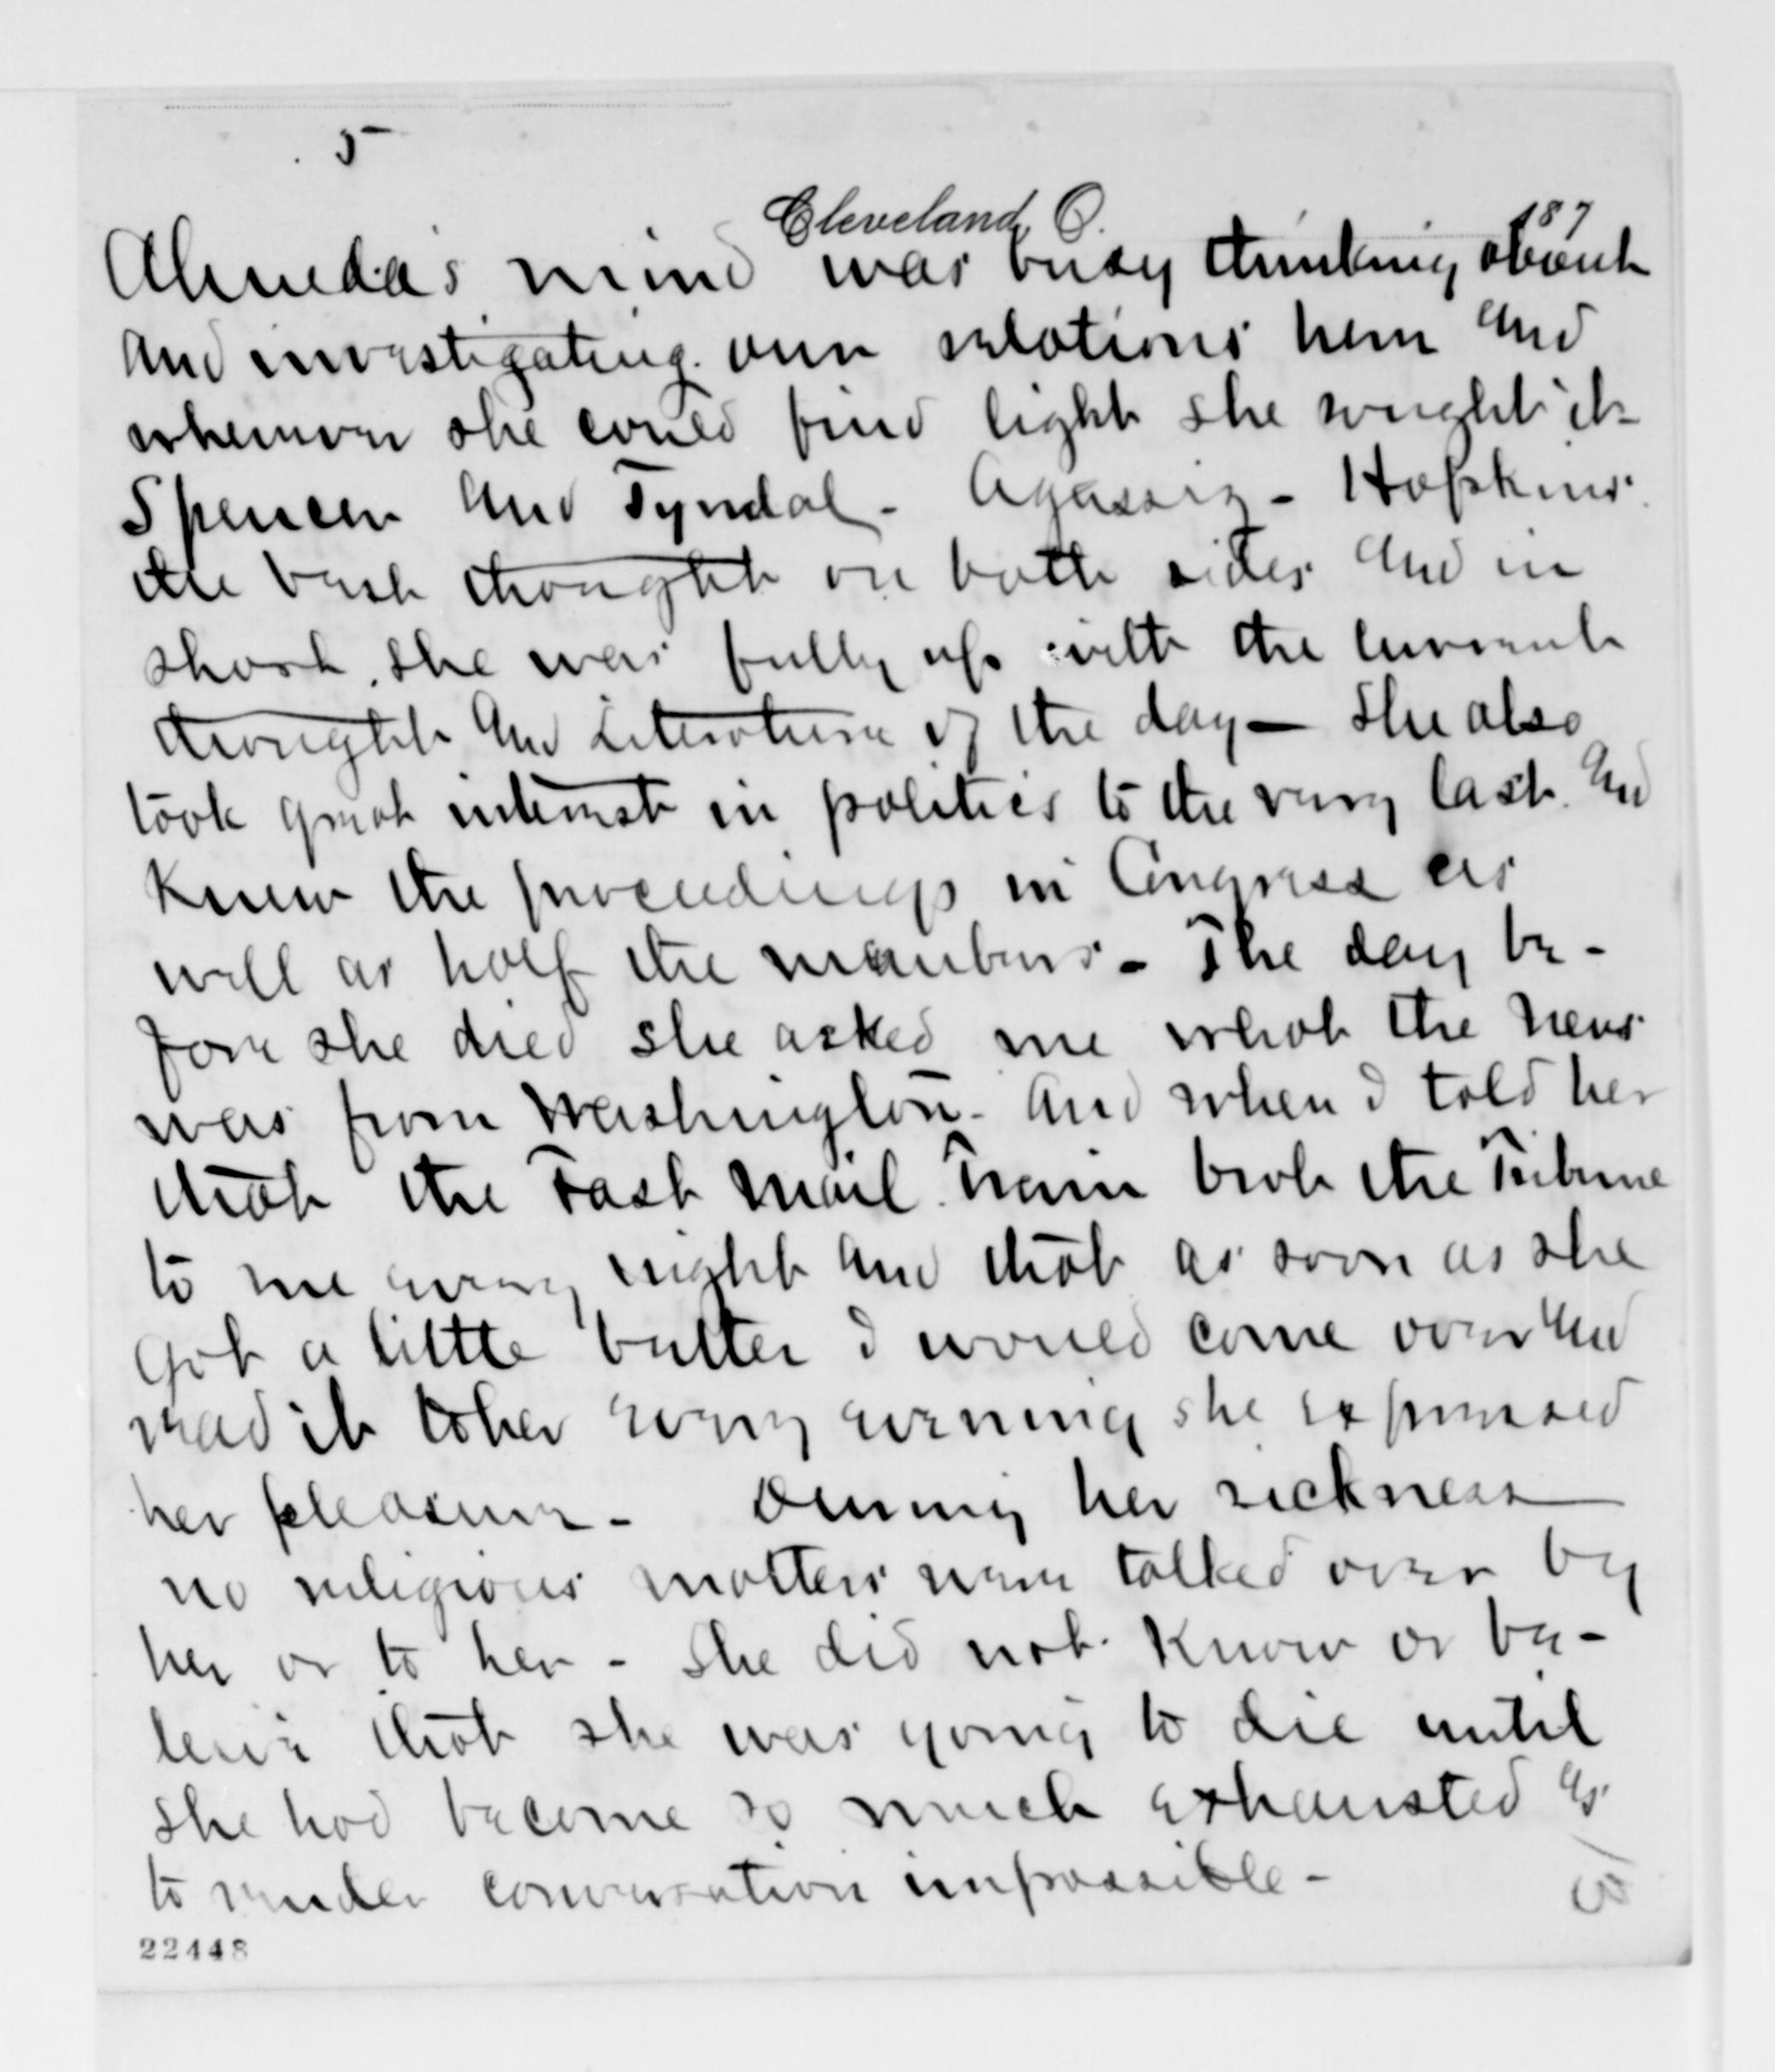 5
Cleveland, O. 187
Almeda's mind was busy thinking about
and investigating our relations here and
wherever she could find light she sought it -
Spencer and Tyndal - Agassiz - Hopkins.
the best thought on both sides and in
short, she was fully up with the current
thought and Literature of the day — She also
took great interest in politics to the very last. And
knew the proceedings in Congress as
well as half the members - The day be-
fore she died she asked me what the news
was from Washington - And when I told her
that the Fast Mail Train brot the Tribune
to me every night and that as soon as she
got a little better I would come over and
read it to her every evening she expressed
her pleasure - During her sickness
no religious matters were talked over by
her or to her - She did not know or be-
leive that she was going to die until
she had become so much exhausted as
to render conversation impossible -
22448